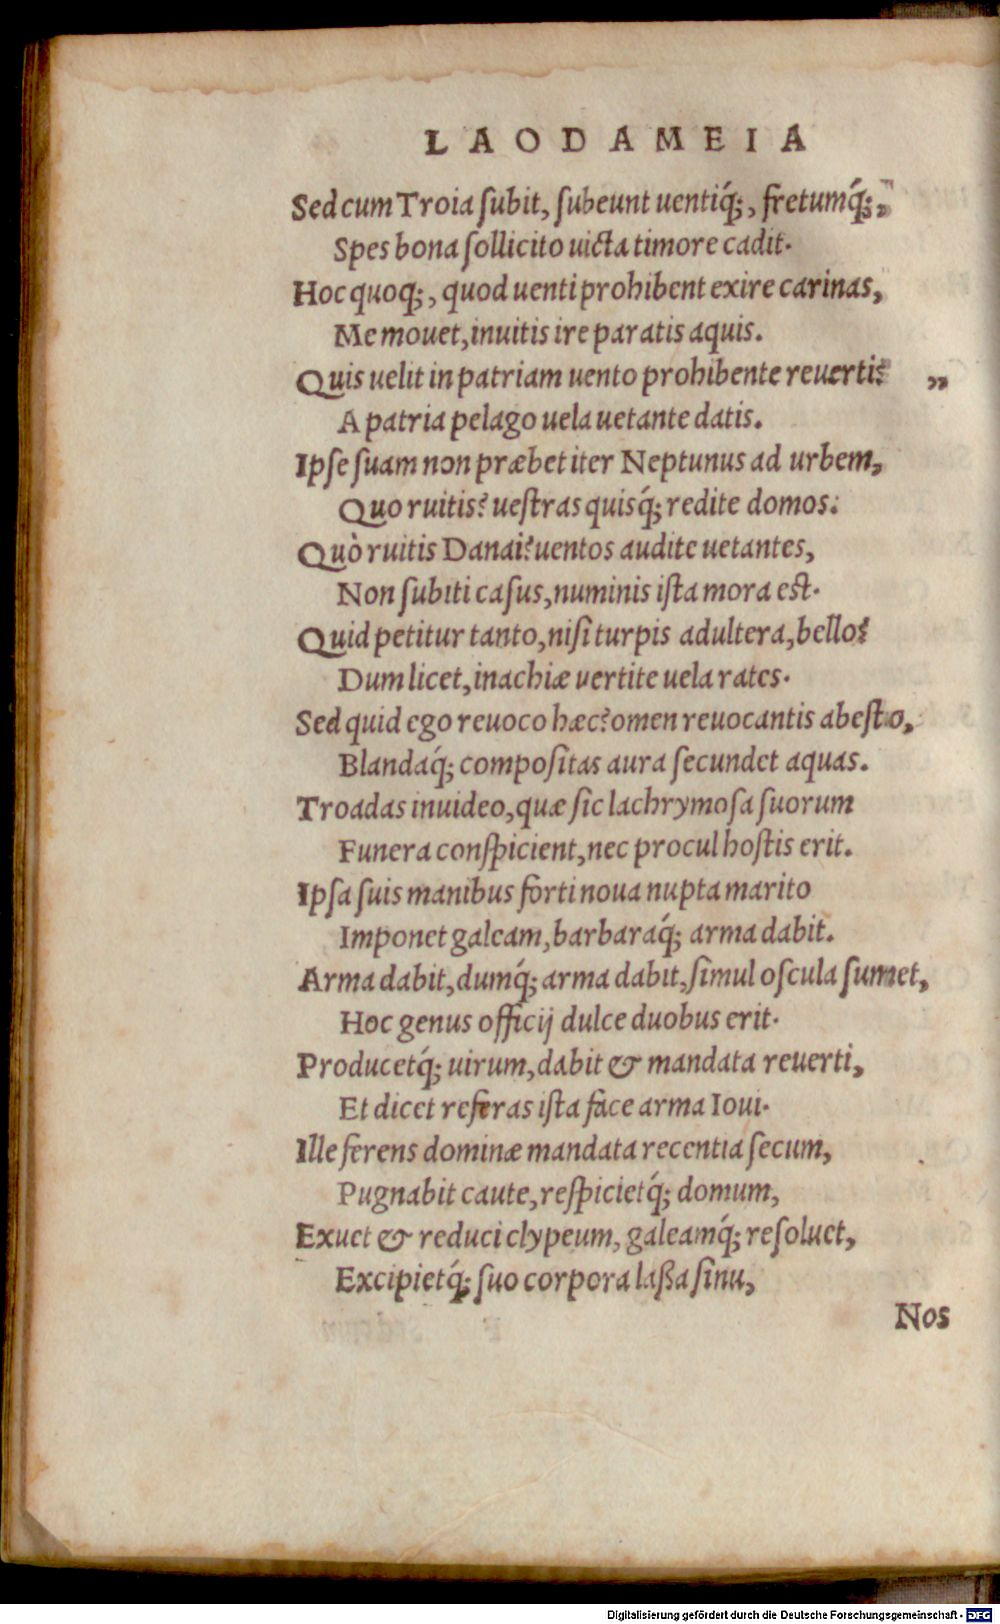 LAODAMEIA
Sed cum Troia ſubit, ſubeunt uentiq́;, fretumq́;,
Spes bona ſollicito uicta timore cadit.
Hoc quoq;, quod uenti prohibent exire carinas,
Me mouet, inuitis ire paratis aquis.
Quis uelit in patriam uento prohibente reuerti? „
A patria pelago uela uetante datis.
Ipſe ſuam non præbet iter Neptunus ad urbem,
Quo ruitis? ueſtras quisq́; redite domos.
Quò ruitis Danai? uentos audite uetantes,
Non ſubiti caſus, numinis iſta mora eſt.
Quid petitur tanto, niſi turpis adultera, bello?
Dum licet, inachiæ uertite uela rates.
Sed quid ego reuoco hæc? omen reuocantis abeſto,
Blandaq́; compoſitas aura ſecundet aquas.
Troadas inuideo, quæ ſic lachrymoſa ſuorum
Funera conſpicient, nec procul hoſtis erit.
Ipſa ſuis manibus forti noua nupta marito
Imponet galeam, barbaraq́; arma dabit.
Arma dabit, dumq́; arma dabit, ſimul oſcula ſumet,
Hoc genus officij dulce duobus erit.
Producetq́; uirum, dabit & mandata reuerti,
Et dicet referas iſta face arma Ioui.
Ille ferens dominæ mandata recentia ſecum,
Pugnabit caute, reſpicietq́; domum,
Exuet & reduci clypeum, galeamq́; reſoluet,
Excipietq́; ſuo corpora laßa ſinu,
Nos
Digitalisierung gefördert durch die Deutsche Forschungsgemeinschaft - DFG